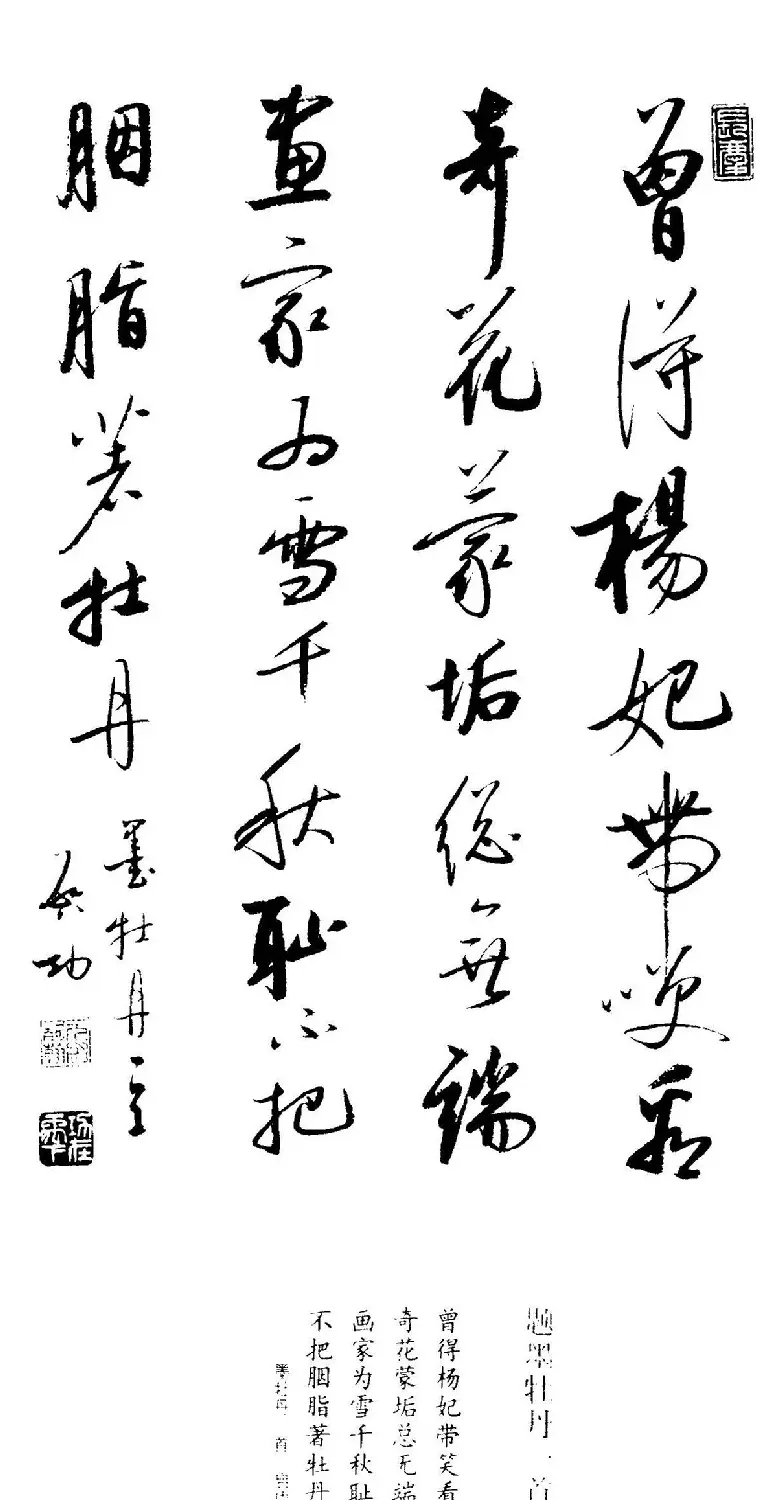 曾得楊妃帶咲看
奇花蒙垢總無端
畫家為雪千秋恥不把
胭脂著牡丹
墨牡丹一首
啟功
题墨牡丹一首
曾得杨妃带笑看
奇花蒙垢总无端
画家为雪千秋耻
不把胭脂著牡丹
墨牡丹一首